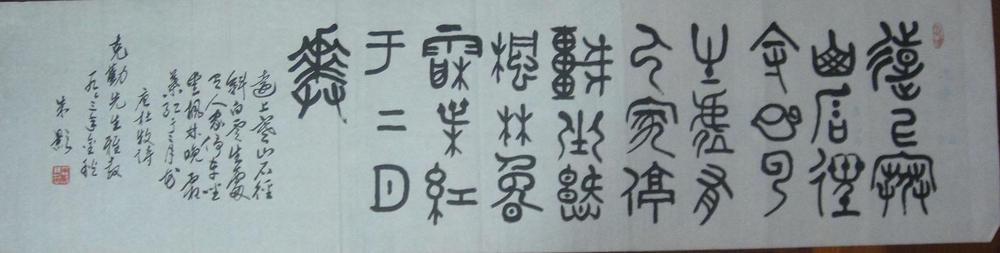 遠上寒
山石徑
斜白雲
生處有
人家停
車坐愛
楓林晚
霜葉紅
于二月
花
遠上寒山石徑
斜白雲生處
有人家停車坐
愛楓林晚霜
葉紅于二月花
唐杜牧詩
先生雅教
年金秋
朱影